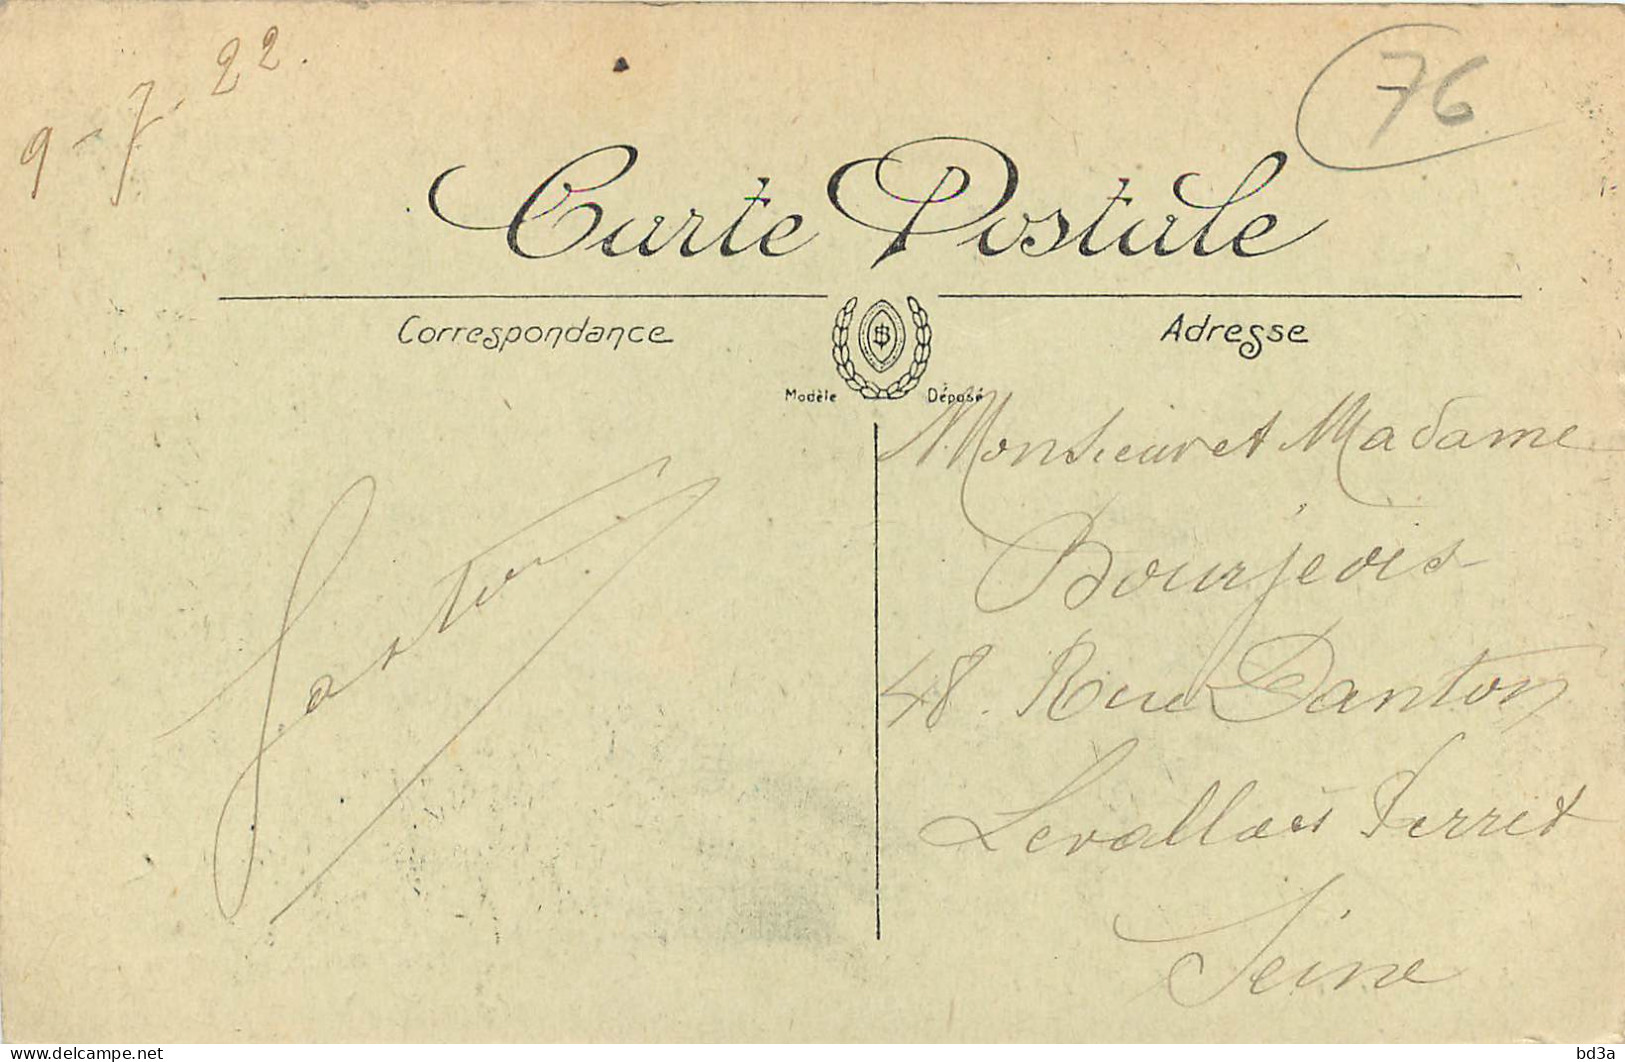 9-7-22.
76
Carte Postale
Correspondance
Adresse
Modèle Déposé
Monsieur et Madame
Bourjeois
48. Rue Danton
Levallois Perret
Seine
delcampe.net
bd3a